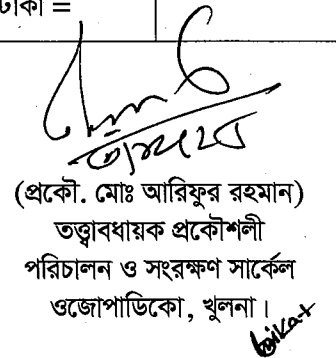 টাকা =
(প্রকৌ. মোঃ আরিফুর রহমান)
তত্ত্বাবধায়ক প্রকৌশলী
পরিচালন ও সংরক্ষণ সার্কেল
ওজোপাডিকো, খুলনা।